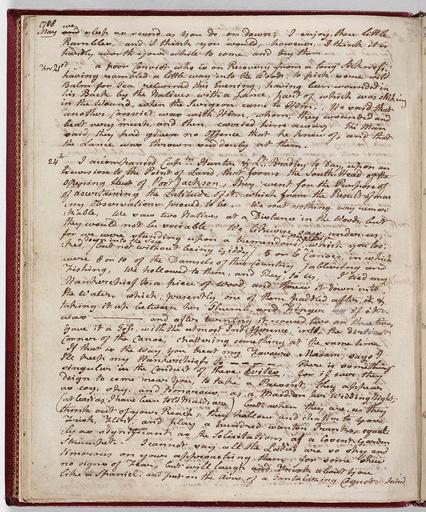 1788
May
we
and sleep as sound as you do on down; I enjoy these little
Rambles, and I think you would, however, I think it is
hardly worth your while to come and try them
21st
a poor Convict who is on Recovery from a long Sickness,
having rambled a little way into the Woods to pick some wild
Balm for Tea, returned this Evening, having been wounded in
his Back by the Natives with a Lance, part of which was sticking
in the Wound, when the Surgeon came to Him. He said that
another Convict was with Him, whom they wounded and
beat very much and then carried him away. The Man
said, they had given no Offence that he knew of and that
the Lance was thrown suddenly at them.
24th
I accompanied Capt. Hunter & Lt. Bradley to day, upon an
excursion to the Point of Land, that forms the South Head of the
opening of Port Jackson, they went for the Purpose of
ascertaining the Latitude of it, which from the Result of many
Observations proved to be. We met nothing very remar-
kable, We saw two Natives at a Distance in the Woods, but
they would not be sociable. We likewise saw under us,
for we were standing upon a tremendous
but not without being Giddy, 5 or 6 Canoes, in which
were 8 or 10 of the Damsels of the Country, jabbering and
Fishing, We hollowed to them, and they to us. I tied my
Handkerchief to a piece of Wood and threw it down into
the Water, which, presently, one of them paddled after, &
taking it up between her Thumb and Finger
and after turning it round two or three times
Gave it a Toss, with the utmost Indifference, into the
Corner of the Canoe, chattering something at the same time
Is that the Way you treat my Favours, Madam, says I
There is something
singular in the Conduct of these Evites for if ever they
deign to come near you, to take a Present, they appear
as coy, shy, and timorous, as a Maid on her Wedding Night,
(at least as I have been told Maids are) but when they are, as they
think out of your Reach, they hollow and chatter to You,
Frisk, Flirt, and play a hundred wanton Pranks, equally
as significant as the Solicitations of a Covent Garden
Strumpet. I cannot say all the Ladies are so shy and
timorous on your approaching them, for some shew
no signs of Fear, but will laugh and Frisk about You
like a Spaniel, and put on the Airs of a Tantalizing Coquet. Indeed